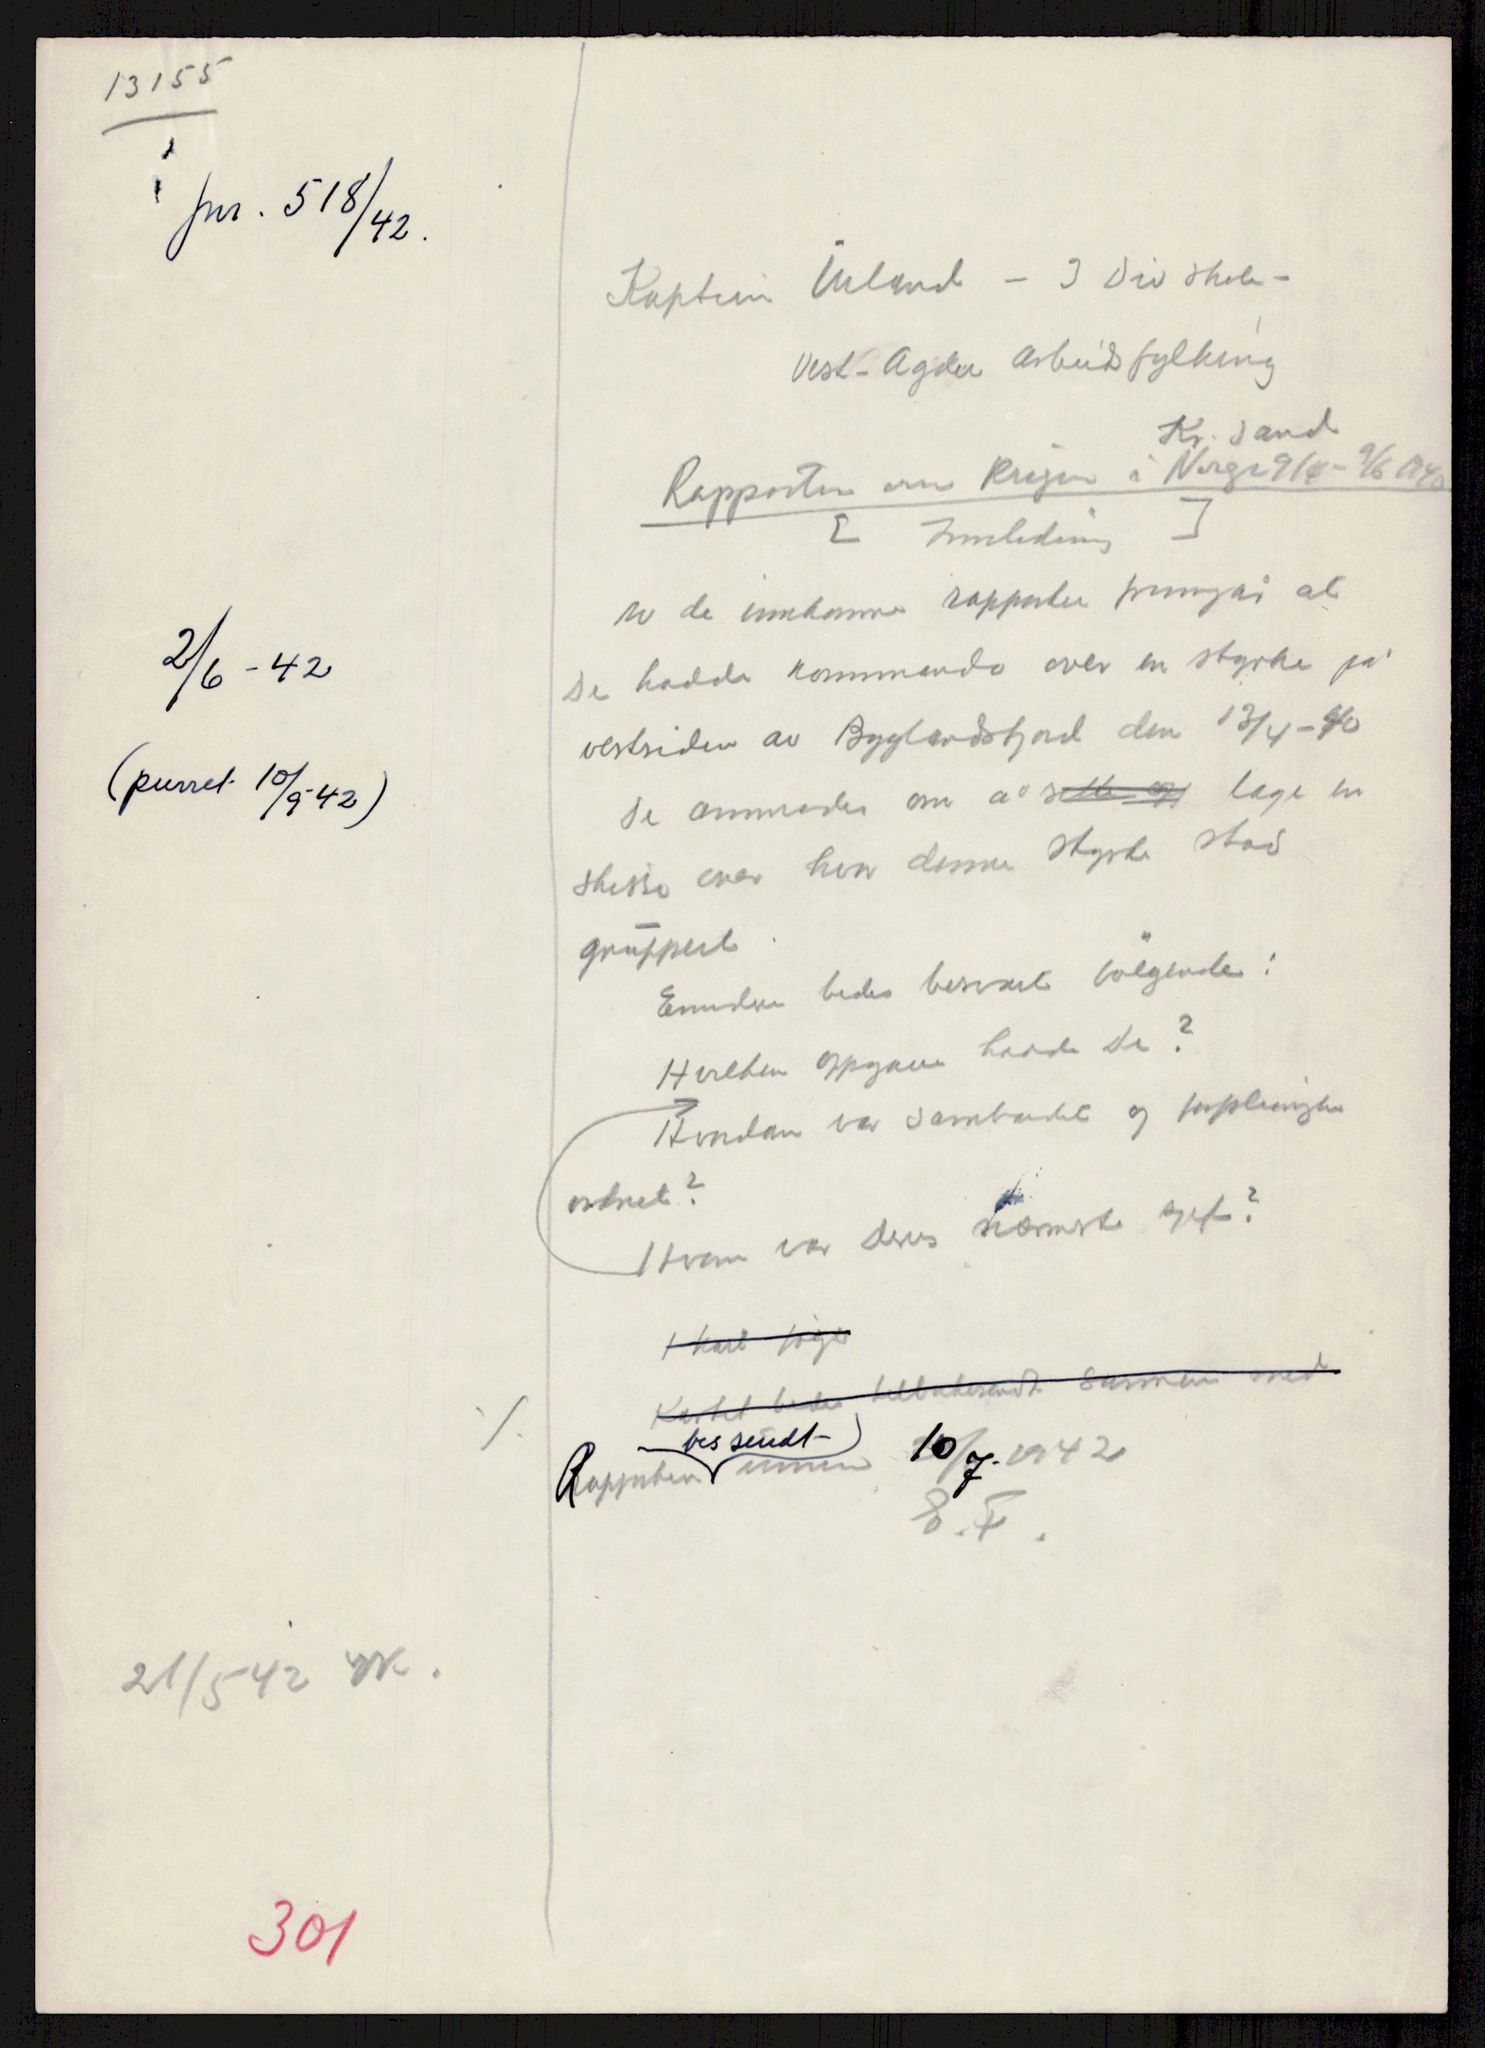 13155
jnr. 518/42.
Kaptein Üeland - 3 Div skole -
Vest-Agder Arbeidsfylking
Kr. sand
Rapporten om krigen i Norge 9/4 - 9/6 1940
[ Innledning ]
Av de innkomne rapporter fremgår at
De hadde kommando over en styrke på
vestsiden av Byglandsfjord den 13/4-40
2/6-42
De anmodes om å sette opp lage en
(purret 10/9 42)
skisse over hvor denne styrke stod
gruppert.
Enndvu bedes besvart følgende:
Hvilken oppgave hadde De?
Hvordan var sambandet og forpleiningen
ordnet?
Hvem var Deres nærmeste sjef?
1 kart følger
Kartet bedes tilbakesendt sammen med
bes sendt
Rapporten innen 10/7. 1942
E.F.
21/5 42
301